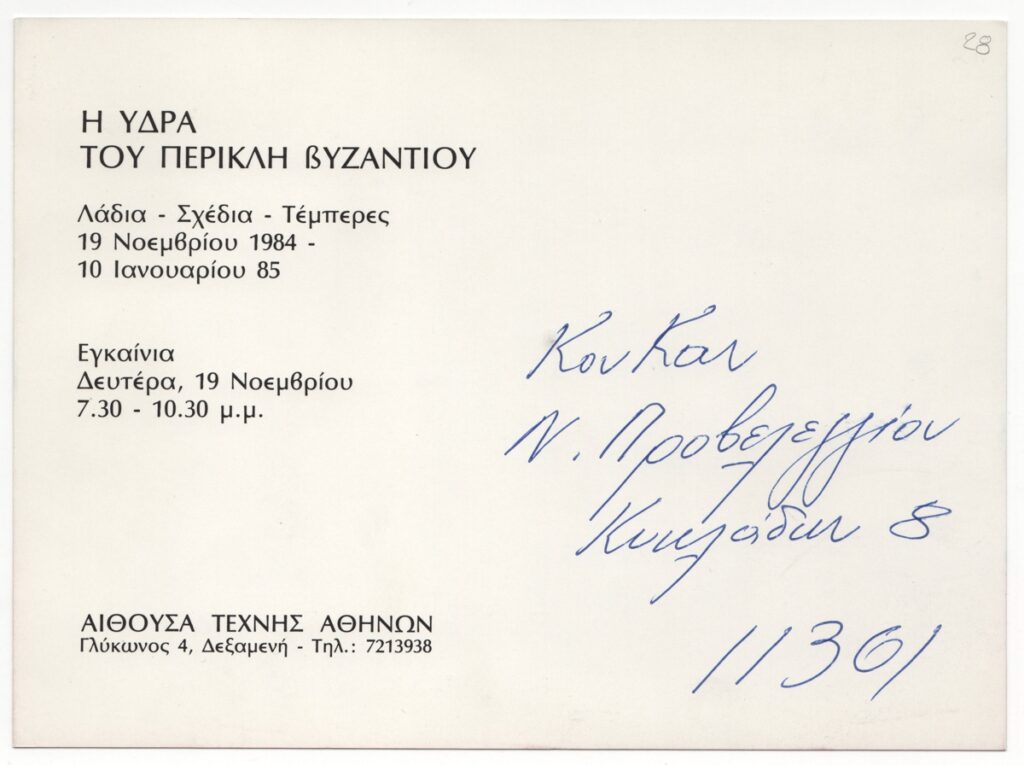 28
Η ΥΔΡΑ
ΤΟΥ ΠΕΡΙΚΛΗ ΒΥΖΑΝΤΙΟΥ
Λάδια - Σχέδια - Τέμπερες
19 Νοεμβρίου 1984 -
10 Ιανουαρίου 85
Εγκαίνια
Δευτέρα, 19 Νοεμβρίου
7.30 - 10.30 μ.μ.
ΑΙΘΟΥΣΑ ΤΕΧΝΗΣ ΑΘΗΝΩΝ
Γλύκωνος 4, Δεξαμενή - Τηλ.: 7213938
Κον Καν
Ν. Προβελεγγίου
Κυκλάδων 8
11361